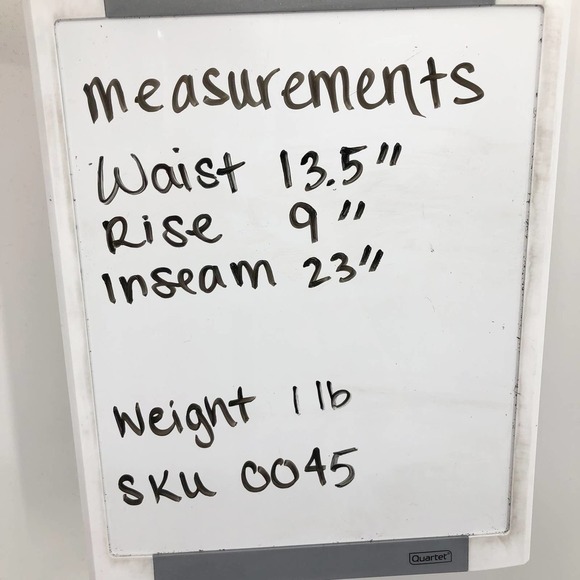 measurements
Waist 13.5"
Rise 9"
Inseam 23"
Weight 1 lb
SKU 0045
Quartet